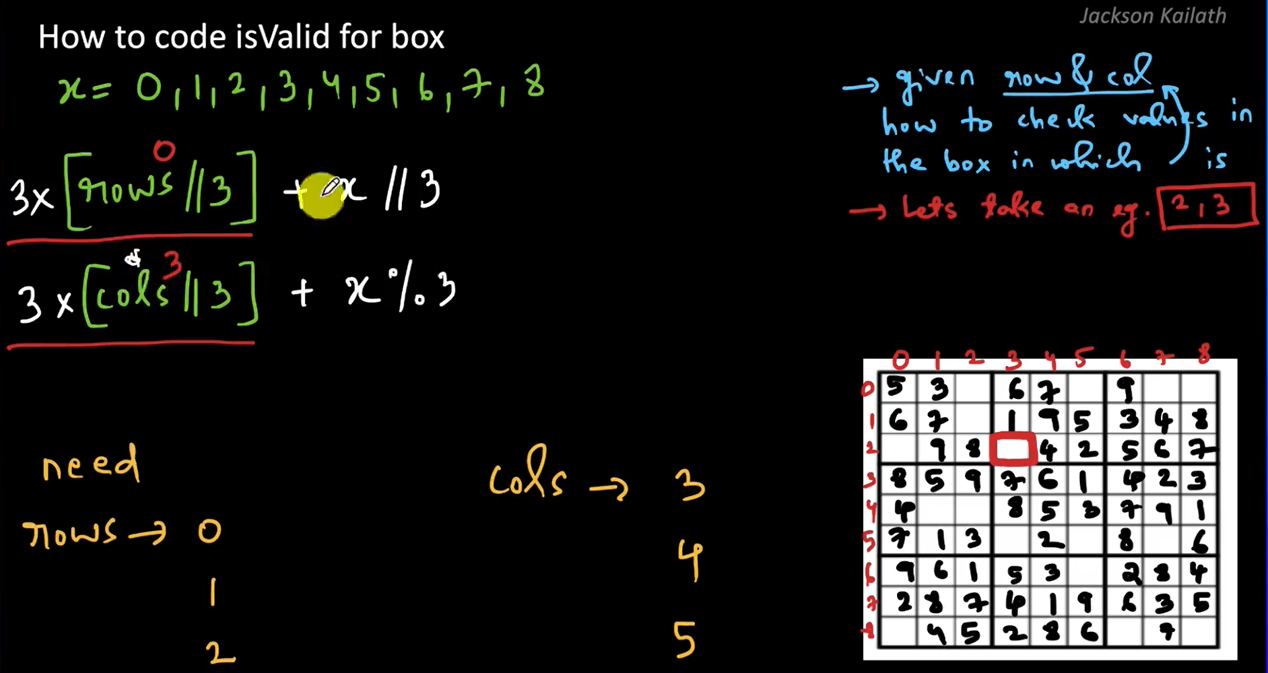 Jackson Kailath
How to code isValid for box
x = 0, 1, 2, 3, 4, 5, 6, 7, 8
0
3x [rows // 3] + x // 3
3
3 x [cols // 3] + x % 3
→ given row & col
how to check values in
the box in which is
→ Lets take an eg. 2, 3
need
rows → 0
1
2
cols → 3
4
5
0 1 2 3 4 5 6 7 8
0 5 3 6 7 9
1 6 7 1 9 5 3 4 8
2 9 8 4 2 5 6 7
3 8 5 9 7 6 1 4 2 3
4 4 8 5 3 7 9 1
5 7 1 3 2 8 6
6 9 6 1 5 3 2 8 4
7 2 8 7 4 1 9 6 3 5
8 4 5 2 8 6 7